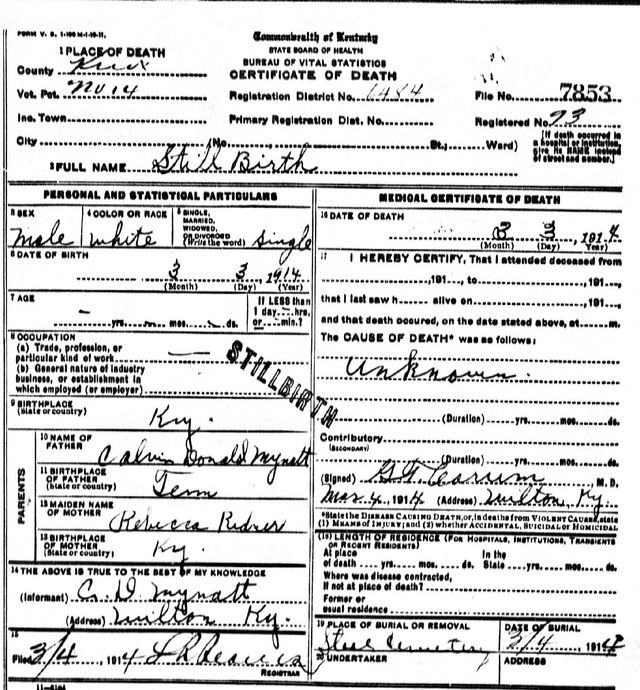 FORM V. S. 1-100 M-1-10-11.
Commonwealth of Kentucky
STATE BOARD OF HEALTH
BUREAU OF VITAL STATISTICS
CERTIFICATE OF DEATH
1 PLACE OF DEATH
County Knox
Vot. Pct. No 14
Inc. Town
City
Registration District No. 6484
Primary Registration Dist. No.
File No. 7853
Registered No. 93
(No. St., Ward)
(If death occurred in a hospital or institution, give its NAME instead of street and number.)
2 FULL NAME Still Birth
PERSONAL AND STATISTICAL PARTICULARS
3 SEX
Male
4 COLOR OR RACE
White
5 SINGLE, MARRIED, WIDOWED, OR DIVORCED (Write the word)
Single
6 DATE OF BIRTH
3 3, 1914
(Month) (Day) (Year)
7 AGE
yrs. mos. ds.
If LESS than 1 day hrs. or min.?
8 OCCUPATION
(a) Trade, profession, or particular kind of work
(b) General nature of industry business, or establishment in which employed (or employer)
STILLBIRTH
9 BIRTHPLACE
(State or country)
Ky.
PARENTS
10 NAME OF FATHER
Calvin Donald Mynatt
11 BIRTHPLACE OF FATHER
(State or country)
Tenn
12 MAIDEN NAME OF MOTHER
Rebecca Ridner
13 BIRTHPLACE OF MOTHER
(State or country)
Ky.
14 THE ABOVE IS TRUE TO THE BEST OF MY KNOWLEDGE
(Informant) C. D Mynatt
(Address) Wilton Ky.
15
Filed 3/4, 1914
REGISTRAR
11-6164
MEDICAL CERTIFICATE OF DEATH
16 DATE OF DEATH
3 3, 1914
(Month) (Day) (Year)
17 I HEREBY CERTIFY, That I attended deceased from
, 191 , to , 191 ,
that I last saw h alive on , 191 ,
and that death occured, on the date stated above, at m.
The CAUSE OF DEATH* was as follows:
Unknown.
(Duration) yrs. mos. ds.
Contributory
(SECONDARY)
(Duration) yrs. mos. ds.
(Signed) M. D.
Mar. 4, 1914 (Address) Wilton Ky.
*State the DISEASE CAUSING DEATH, or, in deaths from VIOLENT CAUSES, state (1) MEANS OF INJURY; and (2) whether ACCIDENTAL, SUICIDAL or HOMICIDAL
(18) LENGTH OF RESIDENCE (FOR HOSPITALS, INSTITUTIONS, TRANSIENTS OR RECENT RESIDENTS)
At place of death yrs. mos. ds. In the State yrs. mos. ds.
Where was disease contracted, if not at place of death?
Former or usual residence
19 PLACE OF BURIAL OR REMOVAL
Cemetery
DATE OF BURIAL
3/4, 1914
20 UNDERTAKER
ADDRESS